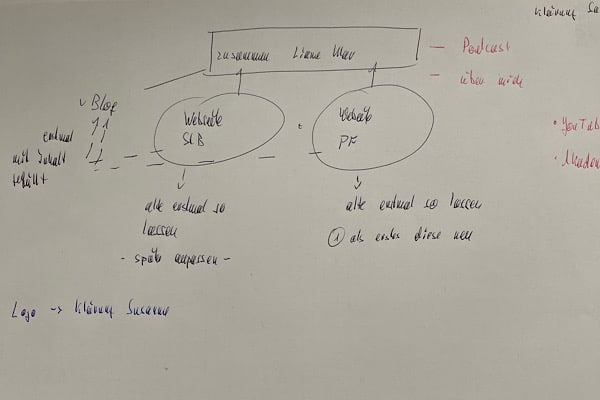 Klärung Su
zusammen Liane Klar
- Podcast
- über mich
v Blog
erstmal
mit Inhalt
gefüllt
Webseite
SLB
Webseite
PF
• YouTub
• Akadem
alte erstmal so
lassen
- später anpassen -
alte erstmal so lassen
① als erstes diese neu
Logo -> Klärung Susanne